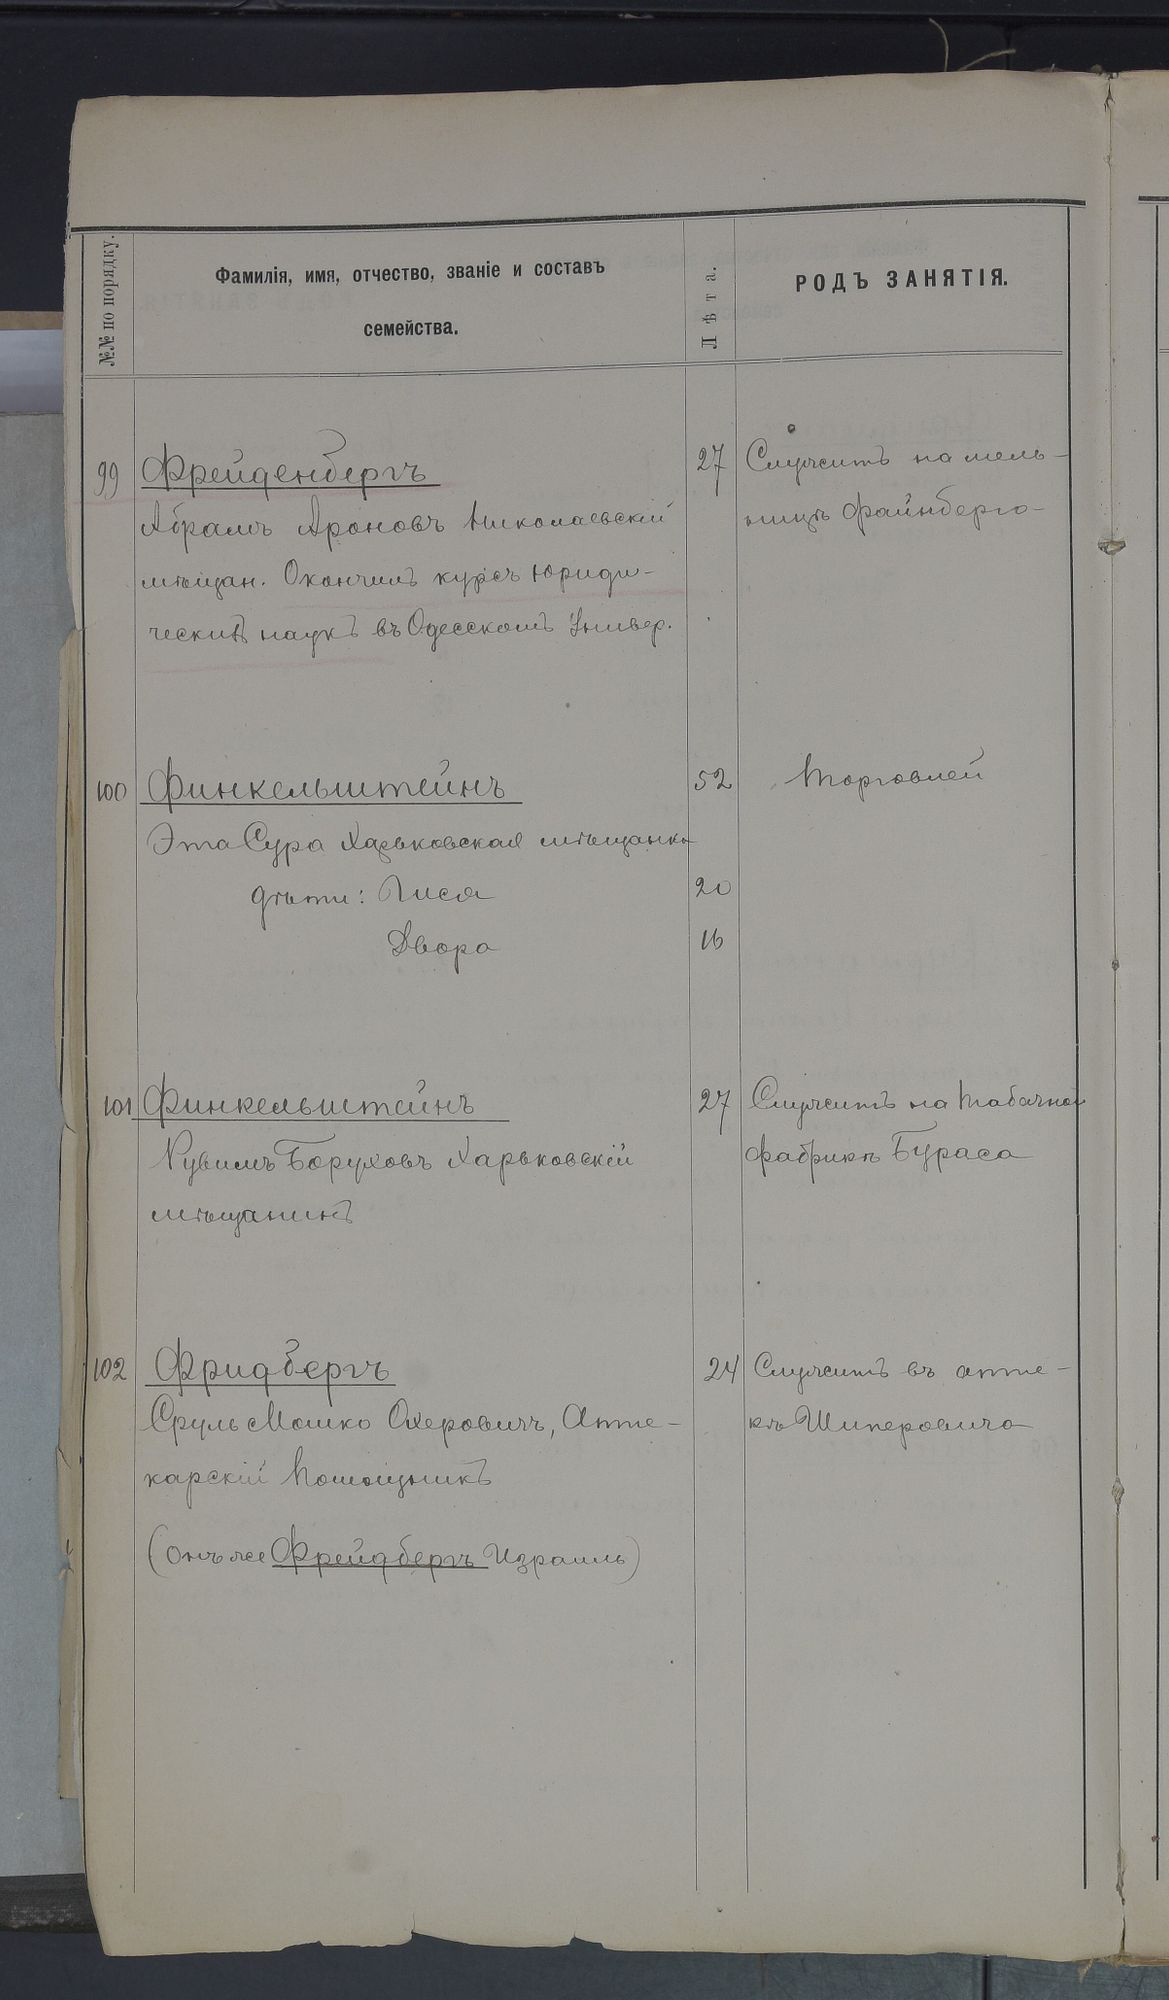 №№ по порядку.
Фамилія, имя, отчество, званіе и составъ
семейства.
Лѣта.
РОДЪ ЗАНЯТІЯ.
99 Фрейденбергъ 27 Служитъ на мель-
Абрамъ Ароновъ Николаевскій ницѣ Файнберга
мѣщан. Окончилъ курсъ юриди-
ческихъ наукъ въ Одесскомъ Универ.
100 Финкельштейнъ 52 Торговлей
Эта Сура Харьковская мѣщанка
дѣти: Гися 20
Двора 16
101 Финкельштейнъ 27 Служитъ на табачной
Рувимъ Боруховъ Харьковскій фабрикѣ Бураса
мѣщанинъ
102 Фридбергъ 24 Служитъ въ апте-
Сруль Мошко Охеровичъ, Апте- кѣ Шиперовича
карскій Помощникъ
(онъ же Фрейдбергъ Израиль)